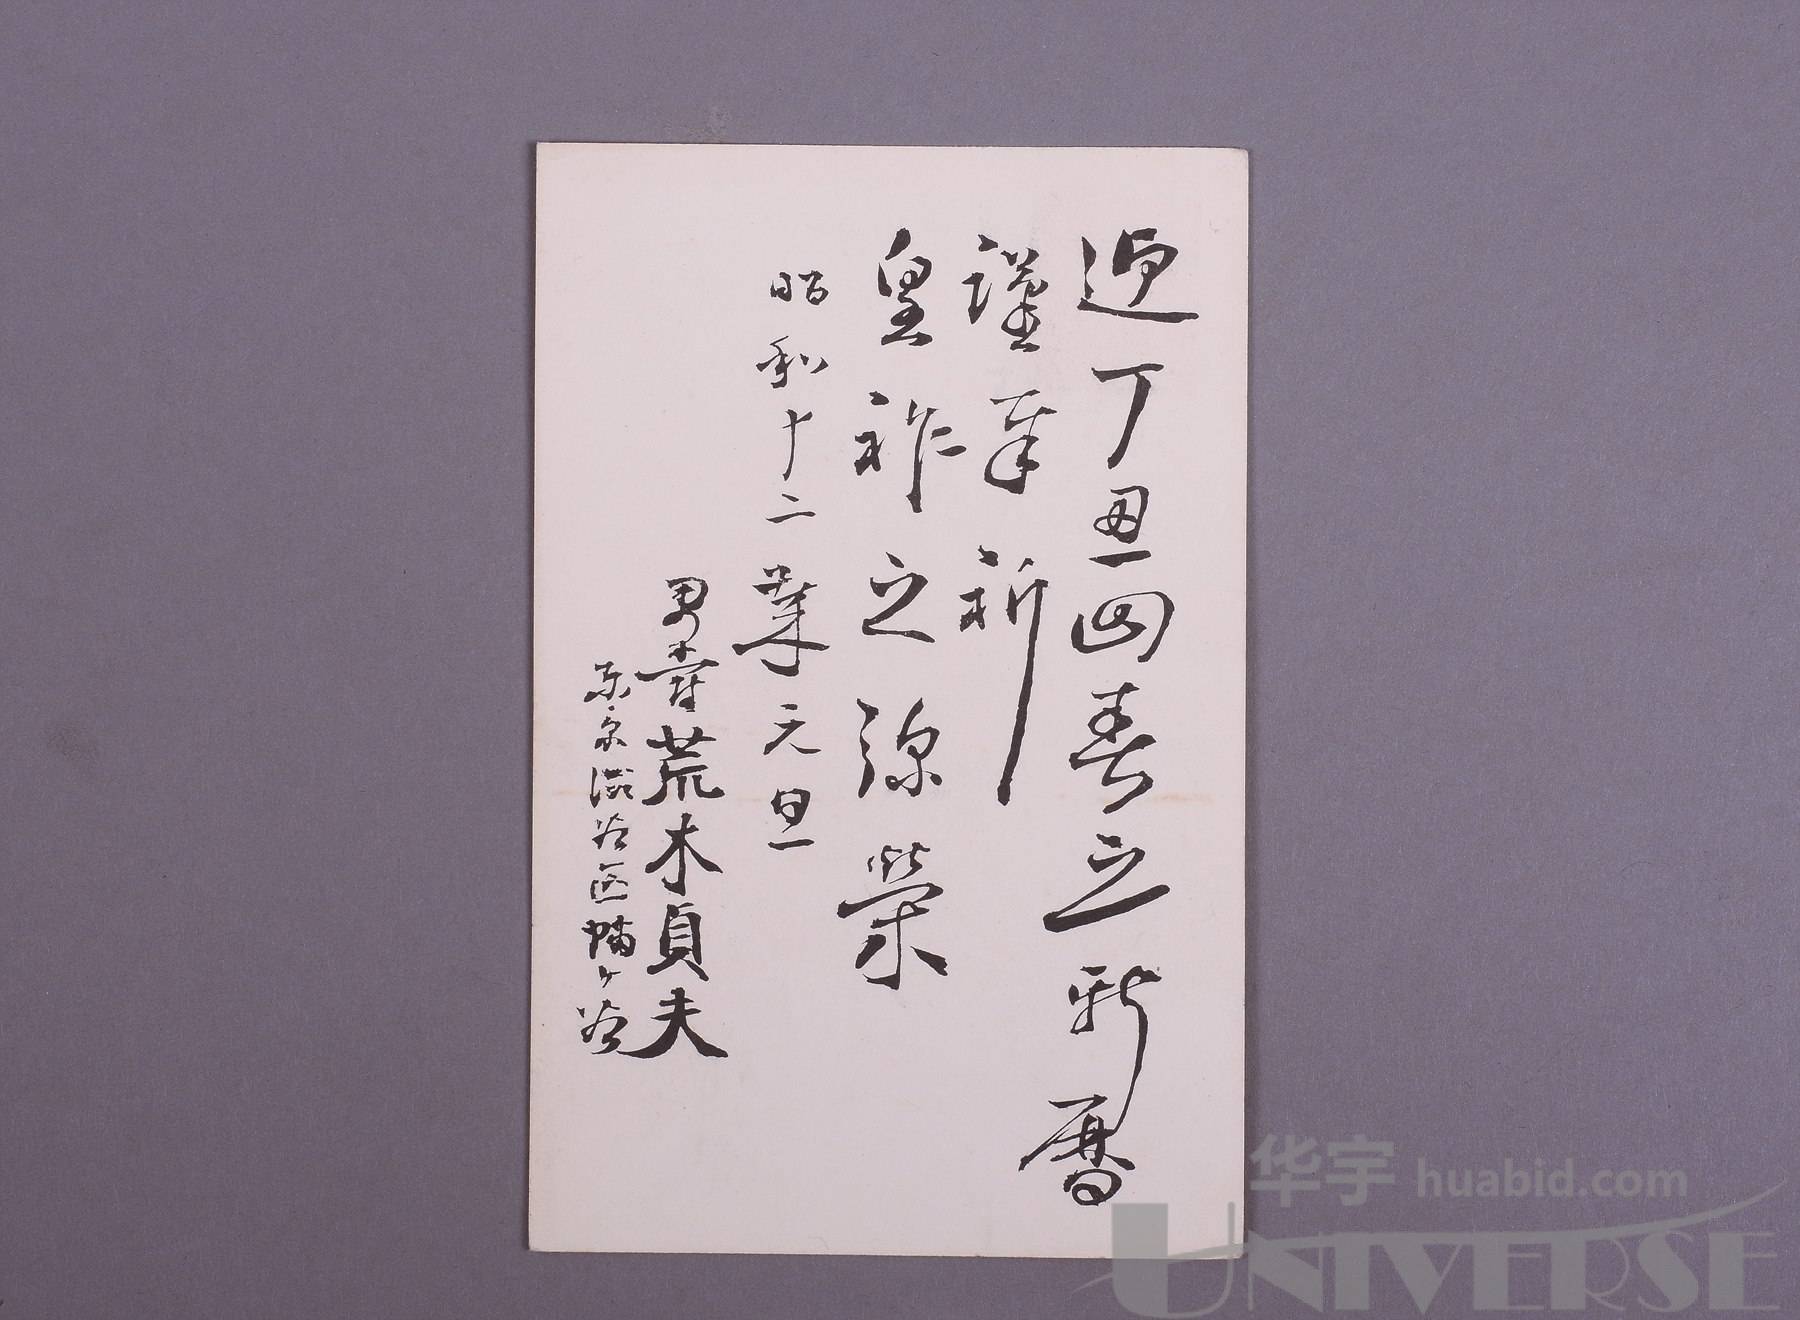 迎丁丑回春之新暦
謹奉祈
皇祚之弥栄
昭和十二年元旦
男爵荒木貞夫
東京渋谷区幡ヶ谷
华宇 huabid.com
UNIVERSE